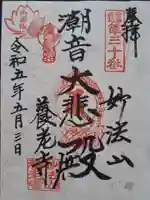 奉拝
第三十番
妙法山
大悲殿
潮音
養老寺
令和五年五月三日